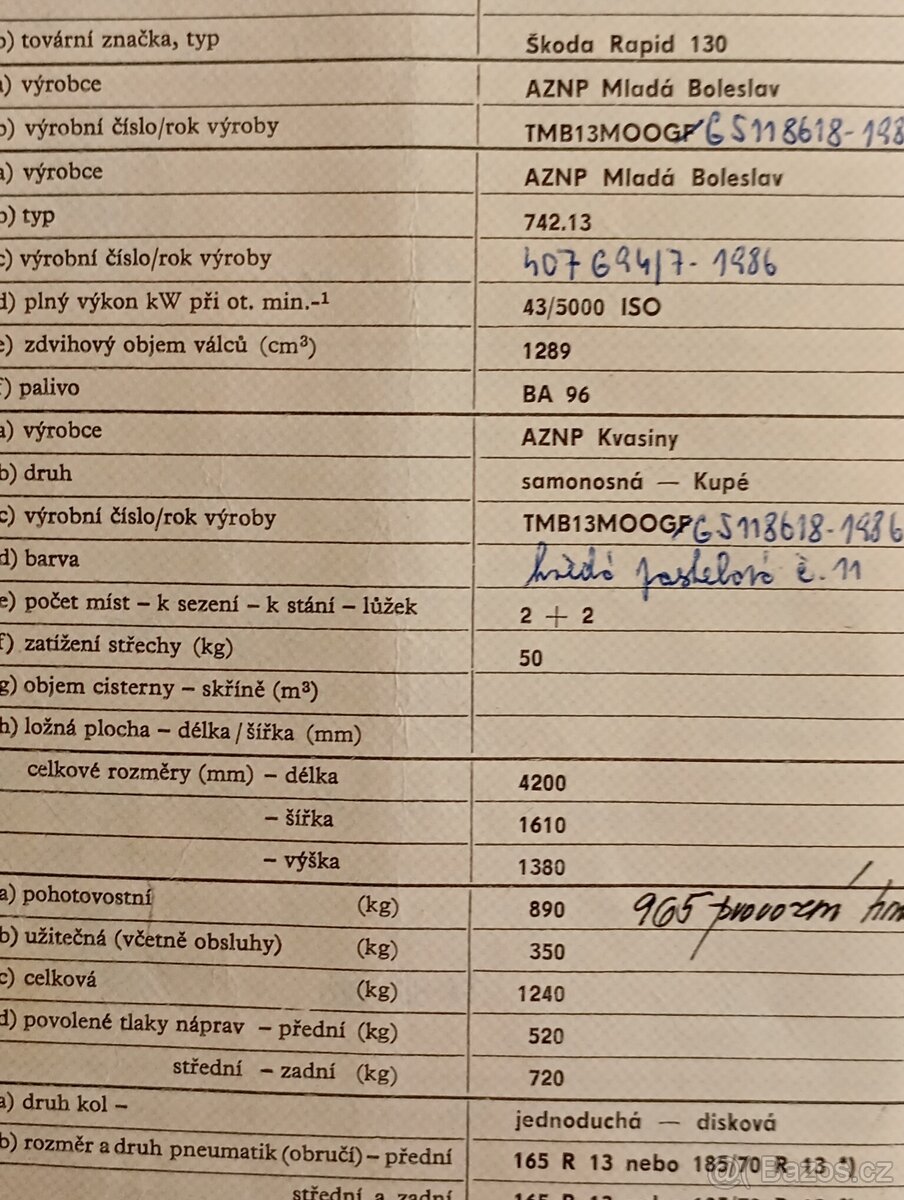 b) tovární značka, typ Škoda Rapid 130
a) výrobce AZNP Mladá Boleslav
b) výrobní číslo/rok výroby TMB13MOOGF G5118618-198
a) výrobce AZNP Mladá Boleslav
b) typ 742.13
c) výrobní číslo/rok výroby 407694/7-1986
d) plný výkon kW při ot. min.-¹ 43/5000 ISO
e) zdvihový objem válců (cm³) 1289
f) palivo BA 96
a) výrobce AZNP Kvasiny
b) druh samonosná — Kupé
c) výrobní číslo/rok výroby TMB13MOOGF G5118618-1986
d) barva hnědá pastelová č. 11
e) počet míst – k sezení – k stání – lůžek 2 + 2
f) zatížení střechy (kg) 50
g) objem cisterny – skříně (m³)
h) ložná plocha – délka/šířka (mm)
celkové rozměry (mm) – délka 4200
– šířka 1610
– výška 1380
a) pohotovostní (kg) 890 965 provozní
b) užitečná (včetně obsluhy) (kg) 350
c) celková (kg) 1240
d) povolené tlaky náprav – přední (kg) 520
střední – zadní (kg) 720
a) druh kol – jednoduchá — disková
b) rozměr a druh pneumatik (obručí) – přední 165 R 13 nebo 185/70 R 13 *)
střední a zadní 165 R 13 nebo 185/70 R 13
Bazos.cz